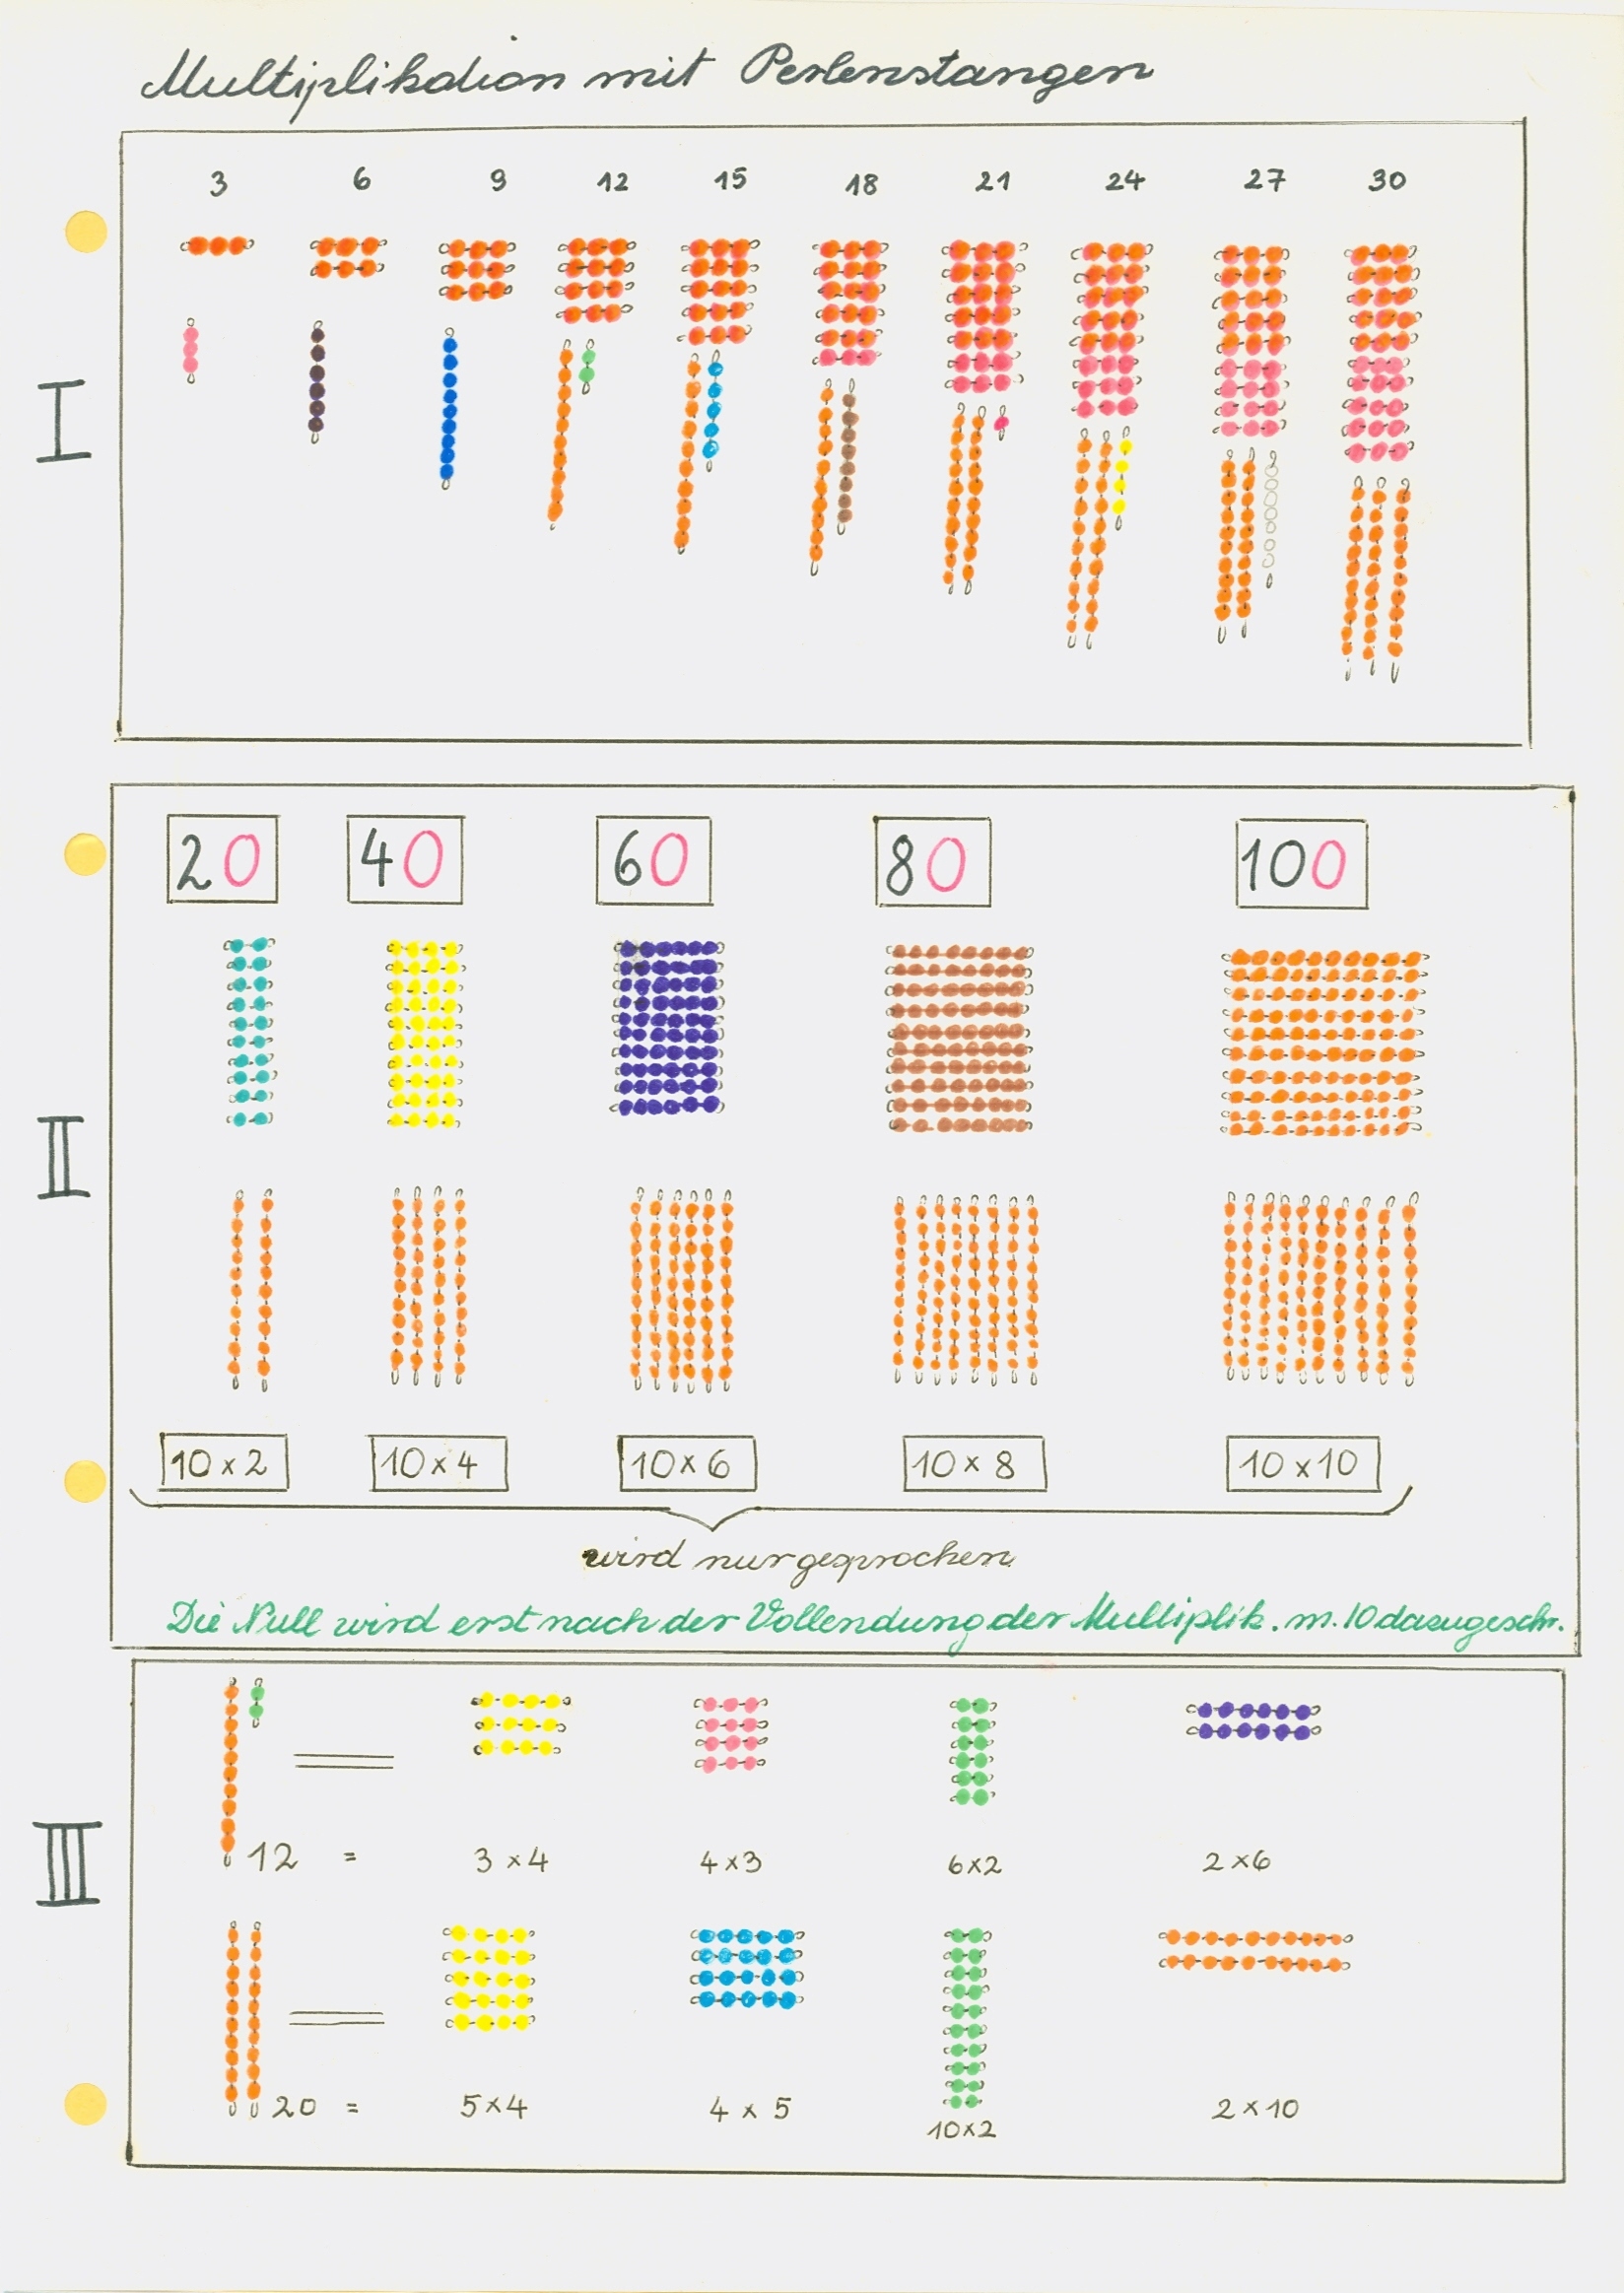 Multiplikation mit Perlenstangen
I
3 6 9 12 15 18 21 24 27 30
II
20 40 60 80 100
10 x 2 10 x 4 10 x 6 10 x 8 10 x 10
wird nur gesprochen
Die Null wird erst nach der Vollendung der Multiplik. m. 10 dazugeschr.
III
12 = 3 x 4 4 x 3 6 x 2 2 x 6
20 = 5 x 4 4 x 5 10 x 2 2 x 10